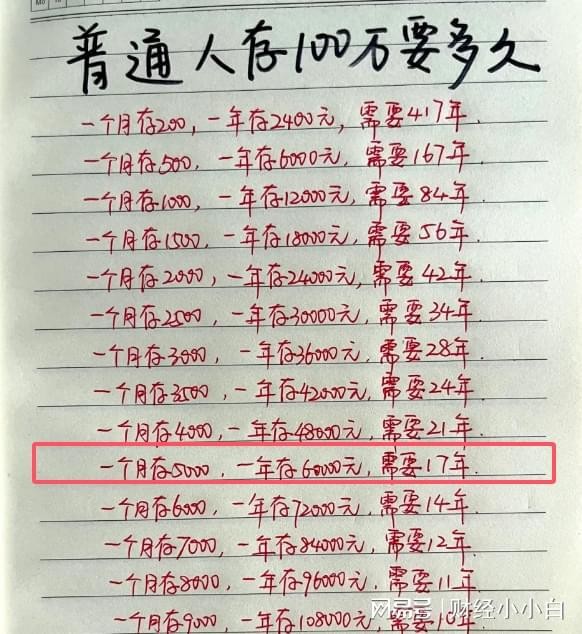 普通人存100万要多久
一个月存200，一年存2400元，需要417年.
一个月存500，一年存6000元，需要167年.
一个月存1000，一年存12000元，需要84年.
一个月存1500，一年存18000元，需要56年.
一个月存2000，一年存24000元，需要42年.
一个月存2500，一年存30000元，需要34年.
一个月存3000，一年存36000元，需要28年.
一个月存3500，一年存42000元，需要24年.
一个月存4000，一年存48000元，需要21年.
一个月存5000，一年存60000元，需要17年.
一个月存6000，一年存72000元，需要14年.
一个月存7000，一年存84000元，需要12年.
一个月存8000，一年存96000元，需要11年.
一个月存9000，一年存108000元，需要10年.
网易号 | 财经小小白